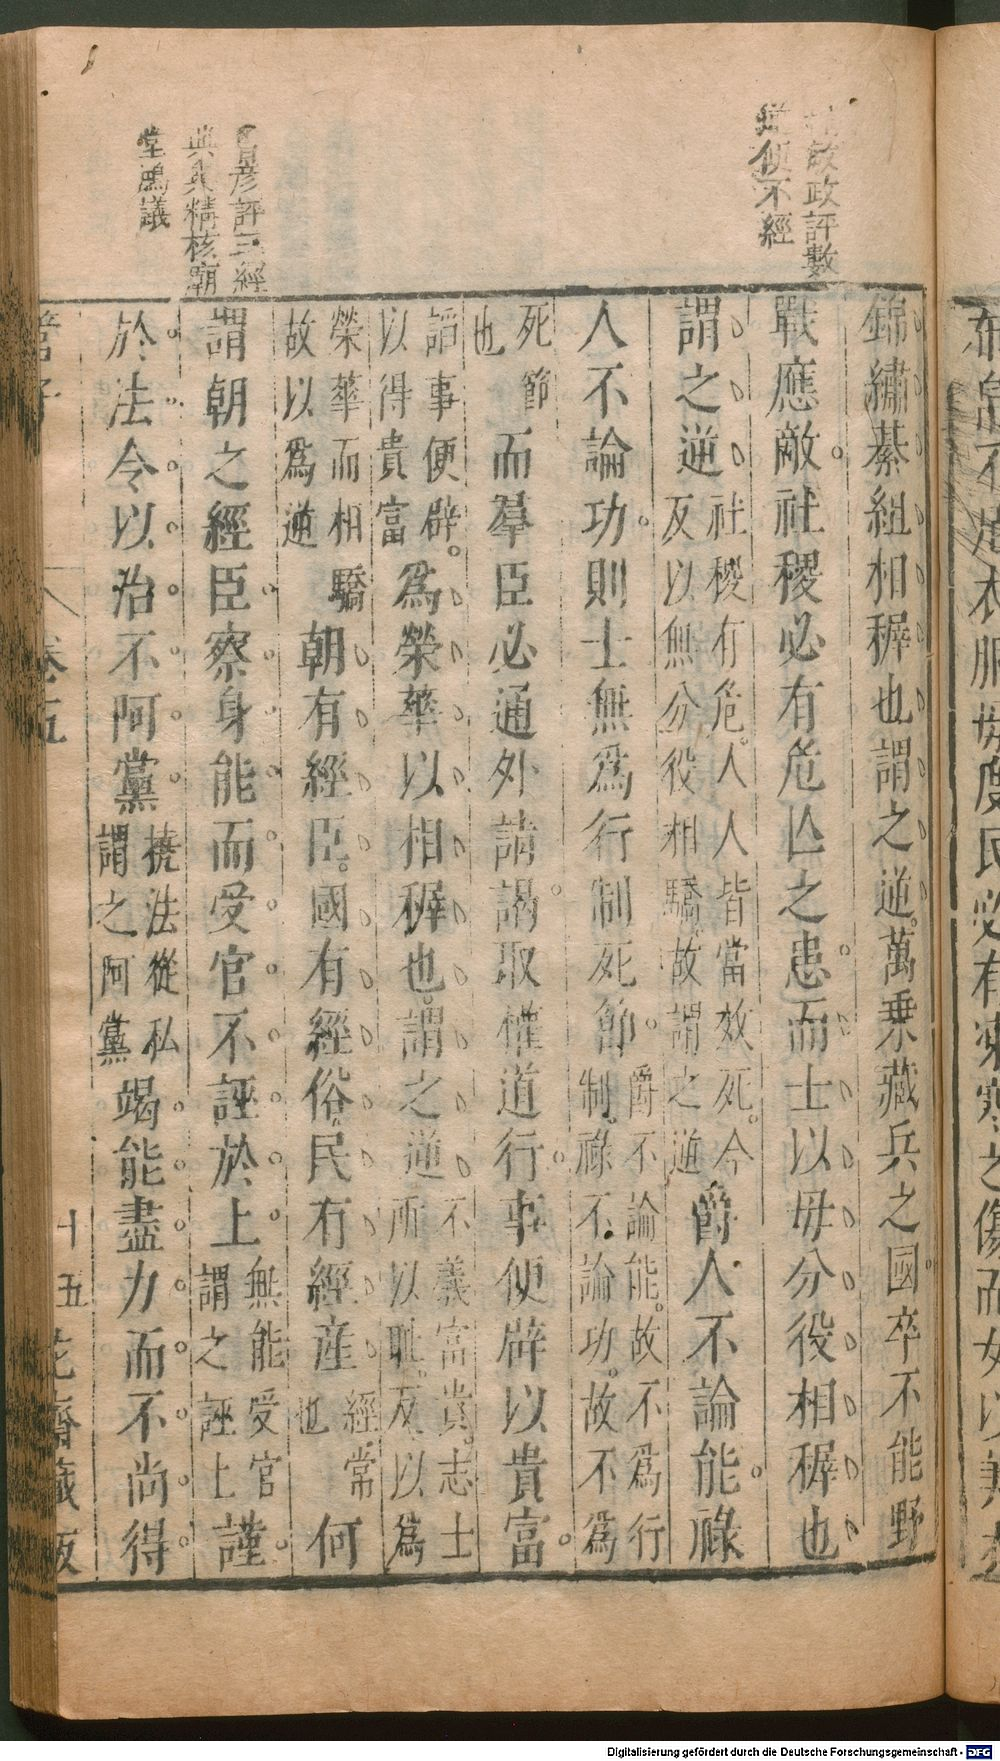 敏政評數
便不經
彥評三經
典精核廟
堂鴻議
錦繡綦組相穉也謂之逆萬乘藏兵之國卒不能野
戰應敵社稷必有危亾之患而士以毋分役相穉也
謂之逆社稷有危人人皆當效死今反以無分役相驕故謂之逆爵人不論能祿
人不論功則士無爲行制死節爵不論能故不爲行制祿不論功故不爲
死節也而羣臣必通外請謁取權道行事便辟以貴富
謟事便辟以得貴富爲榮華以相穉也謂之逆不義富貴志士所以耻反以爲
榮華而相驕故以爲逆朝有經臣國有經俗民有經産經常也何
謂朝之經臣察身能而受官不誣於上無能受官謂之誣上謹
於法令以治不阿黨撓法從私謂之阿黨竭能盡力而不尚得
管子
卷五
十五
花齋藏板
帛不周衣服毋度民必有凍寒之傷而女以美衣
Digitalisierung gefördert durch die Deutsche Forschungsgemeinschaft - DFG